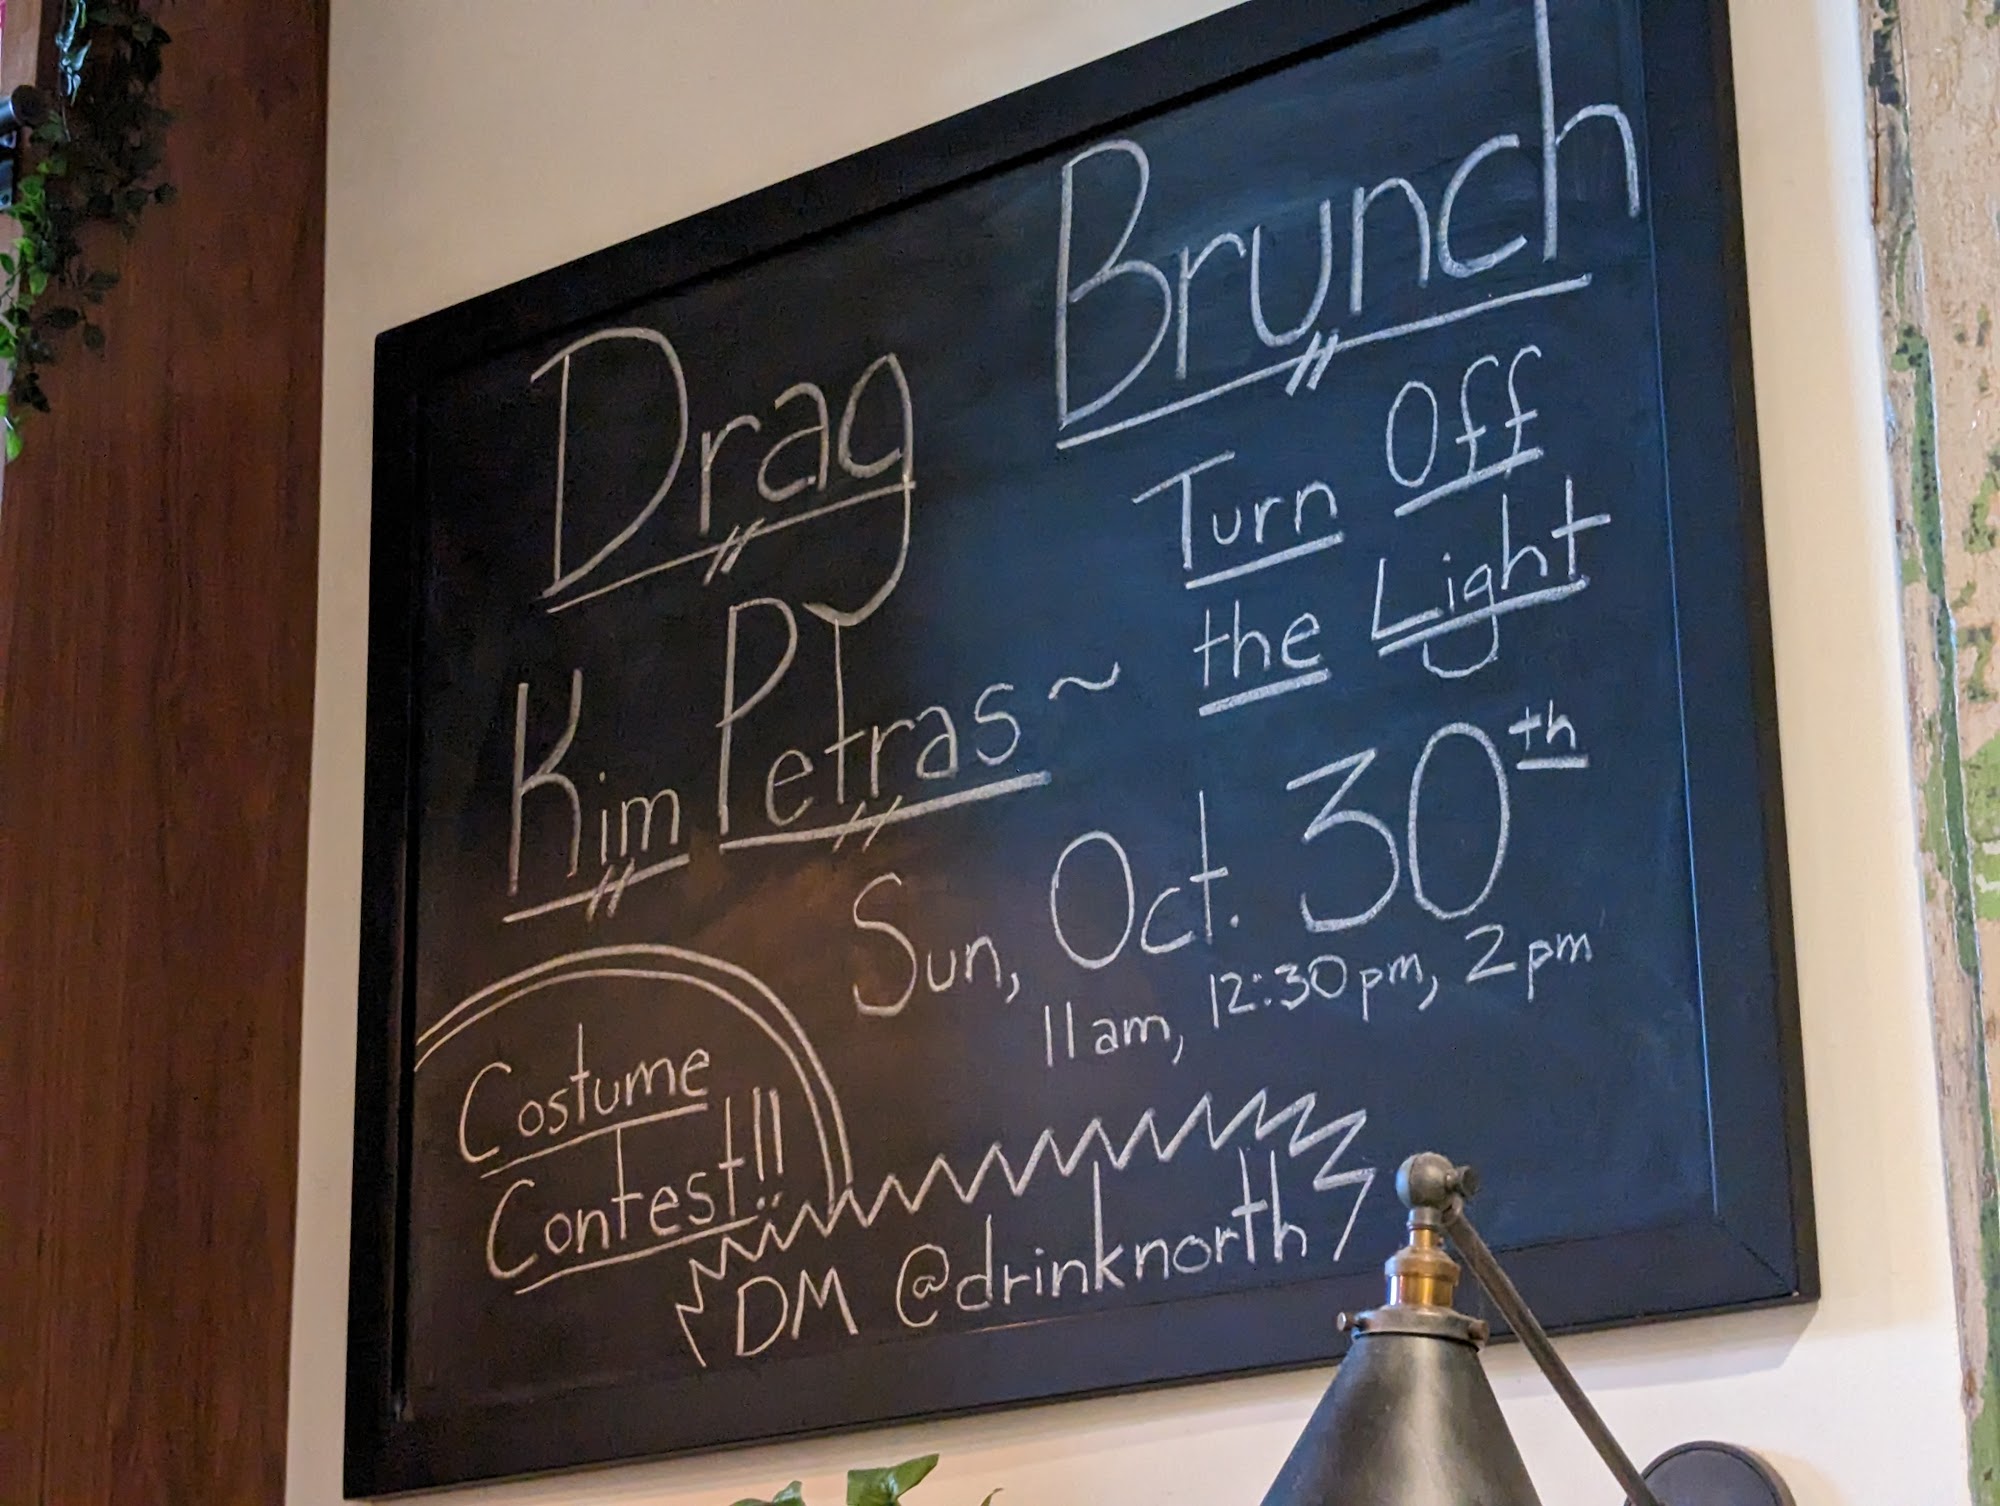 Drag Brunch
Kim Petras ~ Turn Off
the Light
Sun, Oct. 30th
11am, 12:30pm, 2pm
Costume
Contest!!
DM @drinknorth